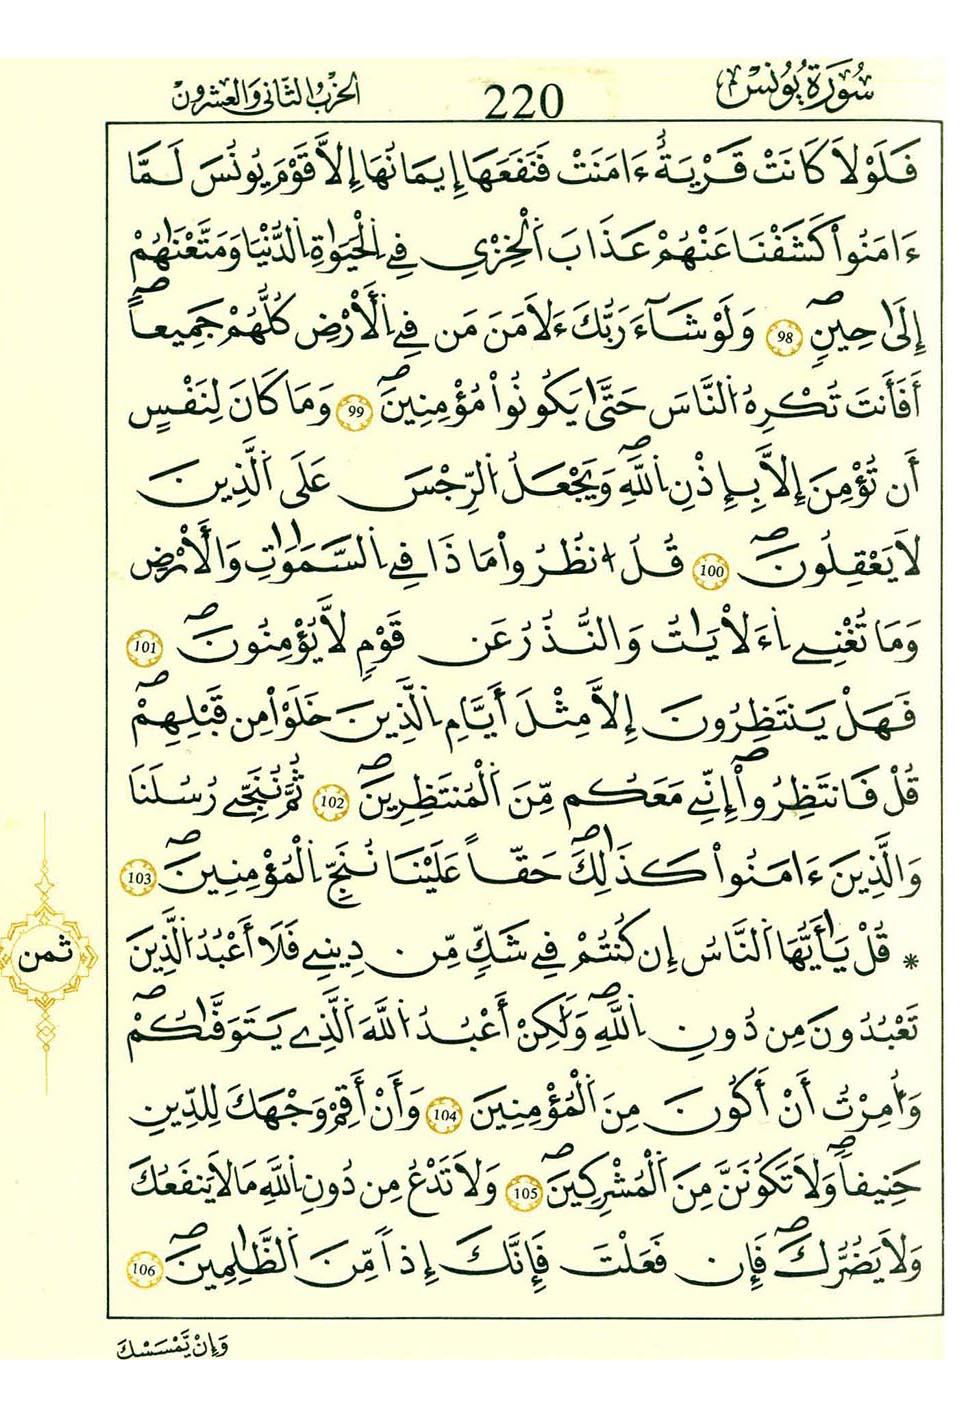 سُورَةُ يُونُسَ 220 الحزب الثاني والعشرون
فَلَوْلَا كَانَتْ قَرْيَةٌ ءَامَنَتْ فَنَفَعَهَا إِيمَانُهَا إِلَّا قَوْمَ يُونُسَ لَمَّا
ءَامَنُواْ كَشَفْنَا عَنْهُمْ عَذَابَ اَلْخِزْيِ فِي اِلْحَيَوٰةِ اِلدُّنْيَا وَمَتَّعْنَٰهُمْ
إِلَىٰ حِينٍۖ 98 وَلَوْ شَآءَ رَبُّكَ ءَلَامَنَ مَن فِي اِلْأَرْضِ كُلُّهُمْ جَمِيعاًۖ
أَفَأَنتَ تُكْرِهُ اُلنَّاسَ حَتَّىٰ يَكُونُواْ مُؤْمِنِينَۖ 99 وَمَا كَانَ لِنَفْسٍ
أَن تُؤْمِنَ إِلَّا بِإِذْنِ اِللَّهِۖ وَيَجْعَلُ اُلرِّجْسَ عَلَى اَلَّذِينَ
لَا يَعْقِلُونَۖ 100 قُلُ اُنظُرُواْ مَاذَا فِي اِلسَّمَٰوَٰتِ وَالْأَرْضِ
وَمَا تُغْنِي اِءَلْأيَٰتُ وَالنُّذُرُ عَن قَوْمٍ لَّا يُؤْمِنُونَۖ 101
فَهَلْ يَنتَظِرُونَ إِلَّا مِثْلَ أَيَّامِ اِلَّذِينَ خَلَوْاْ مِن قَبْلِهِمْۖ
قُلْ فَانتَظِرُوٓاْۖ إِنِّي مَعَكُم مِّنَ اَلْمُنتَظِرِينَۖ 102 ثُمَّ نُنَجِّي رُسُلَنَا
وَالَّذِينَ ءَامَنُواْ كَذَٰلِكَۖ حَقّاً عَلَيْنَا نُنَجِّ اِلْمُؤْمِنِينَۖ 103
* قُلْ يَٰأَيُّهَا اَلنَّاسُ إِن كُنتُمْ فِي شَكٍّ مِّن دِينِي فَلَا أَعْبُدُ اُلَّذِينَ
ثمن
تَعْبُدُونَ مِن دُونِ اِللَّهِۖ وَلَٰكِنْ أَعْبُدُ اُللَّهَ اَلَّذِي يَتَوَفَّىٰكُمْۖ
وَأُمِرْتُ أَنْ أَكُونَ مِنَ اَلْمُؤْمِنِينَ 104 وَأَنْ أَقِمْ وَجْهَكَ لِلدِّينِ
حَنِيفاًۖ وَلَا تَكُونَنَّ مِنَ اَلْمُشْرِكِينَۖ 105 وَلَا تَدْعُ مِن دُونِ اِللَّهِ مَا لَا يَنفَعُكَ
وَلَا يَضُرُّكَۖ فَإِن فَعَلْتَ فَإِنَّكَ إِذاً مِّنَ اَلظَّٰلِمِينَۖ 106
وَإِنْ يَّمْسَسْكَ